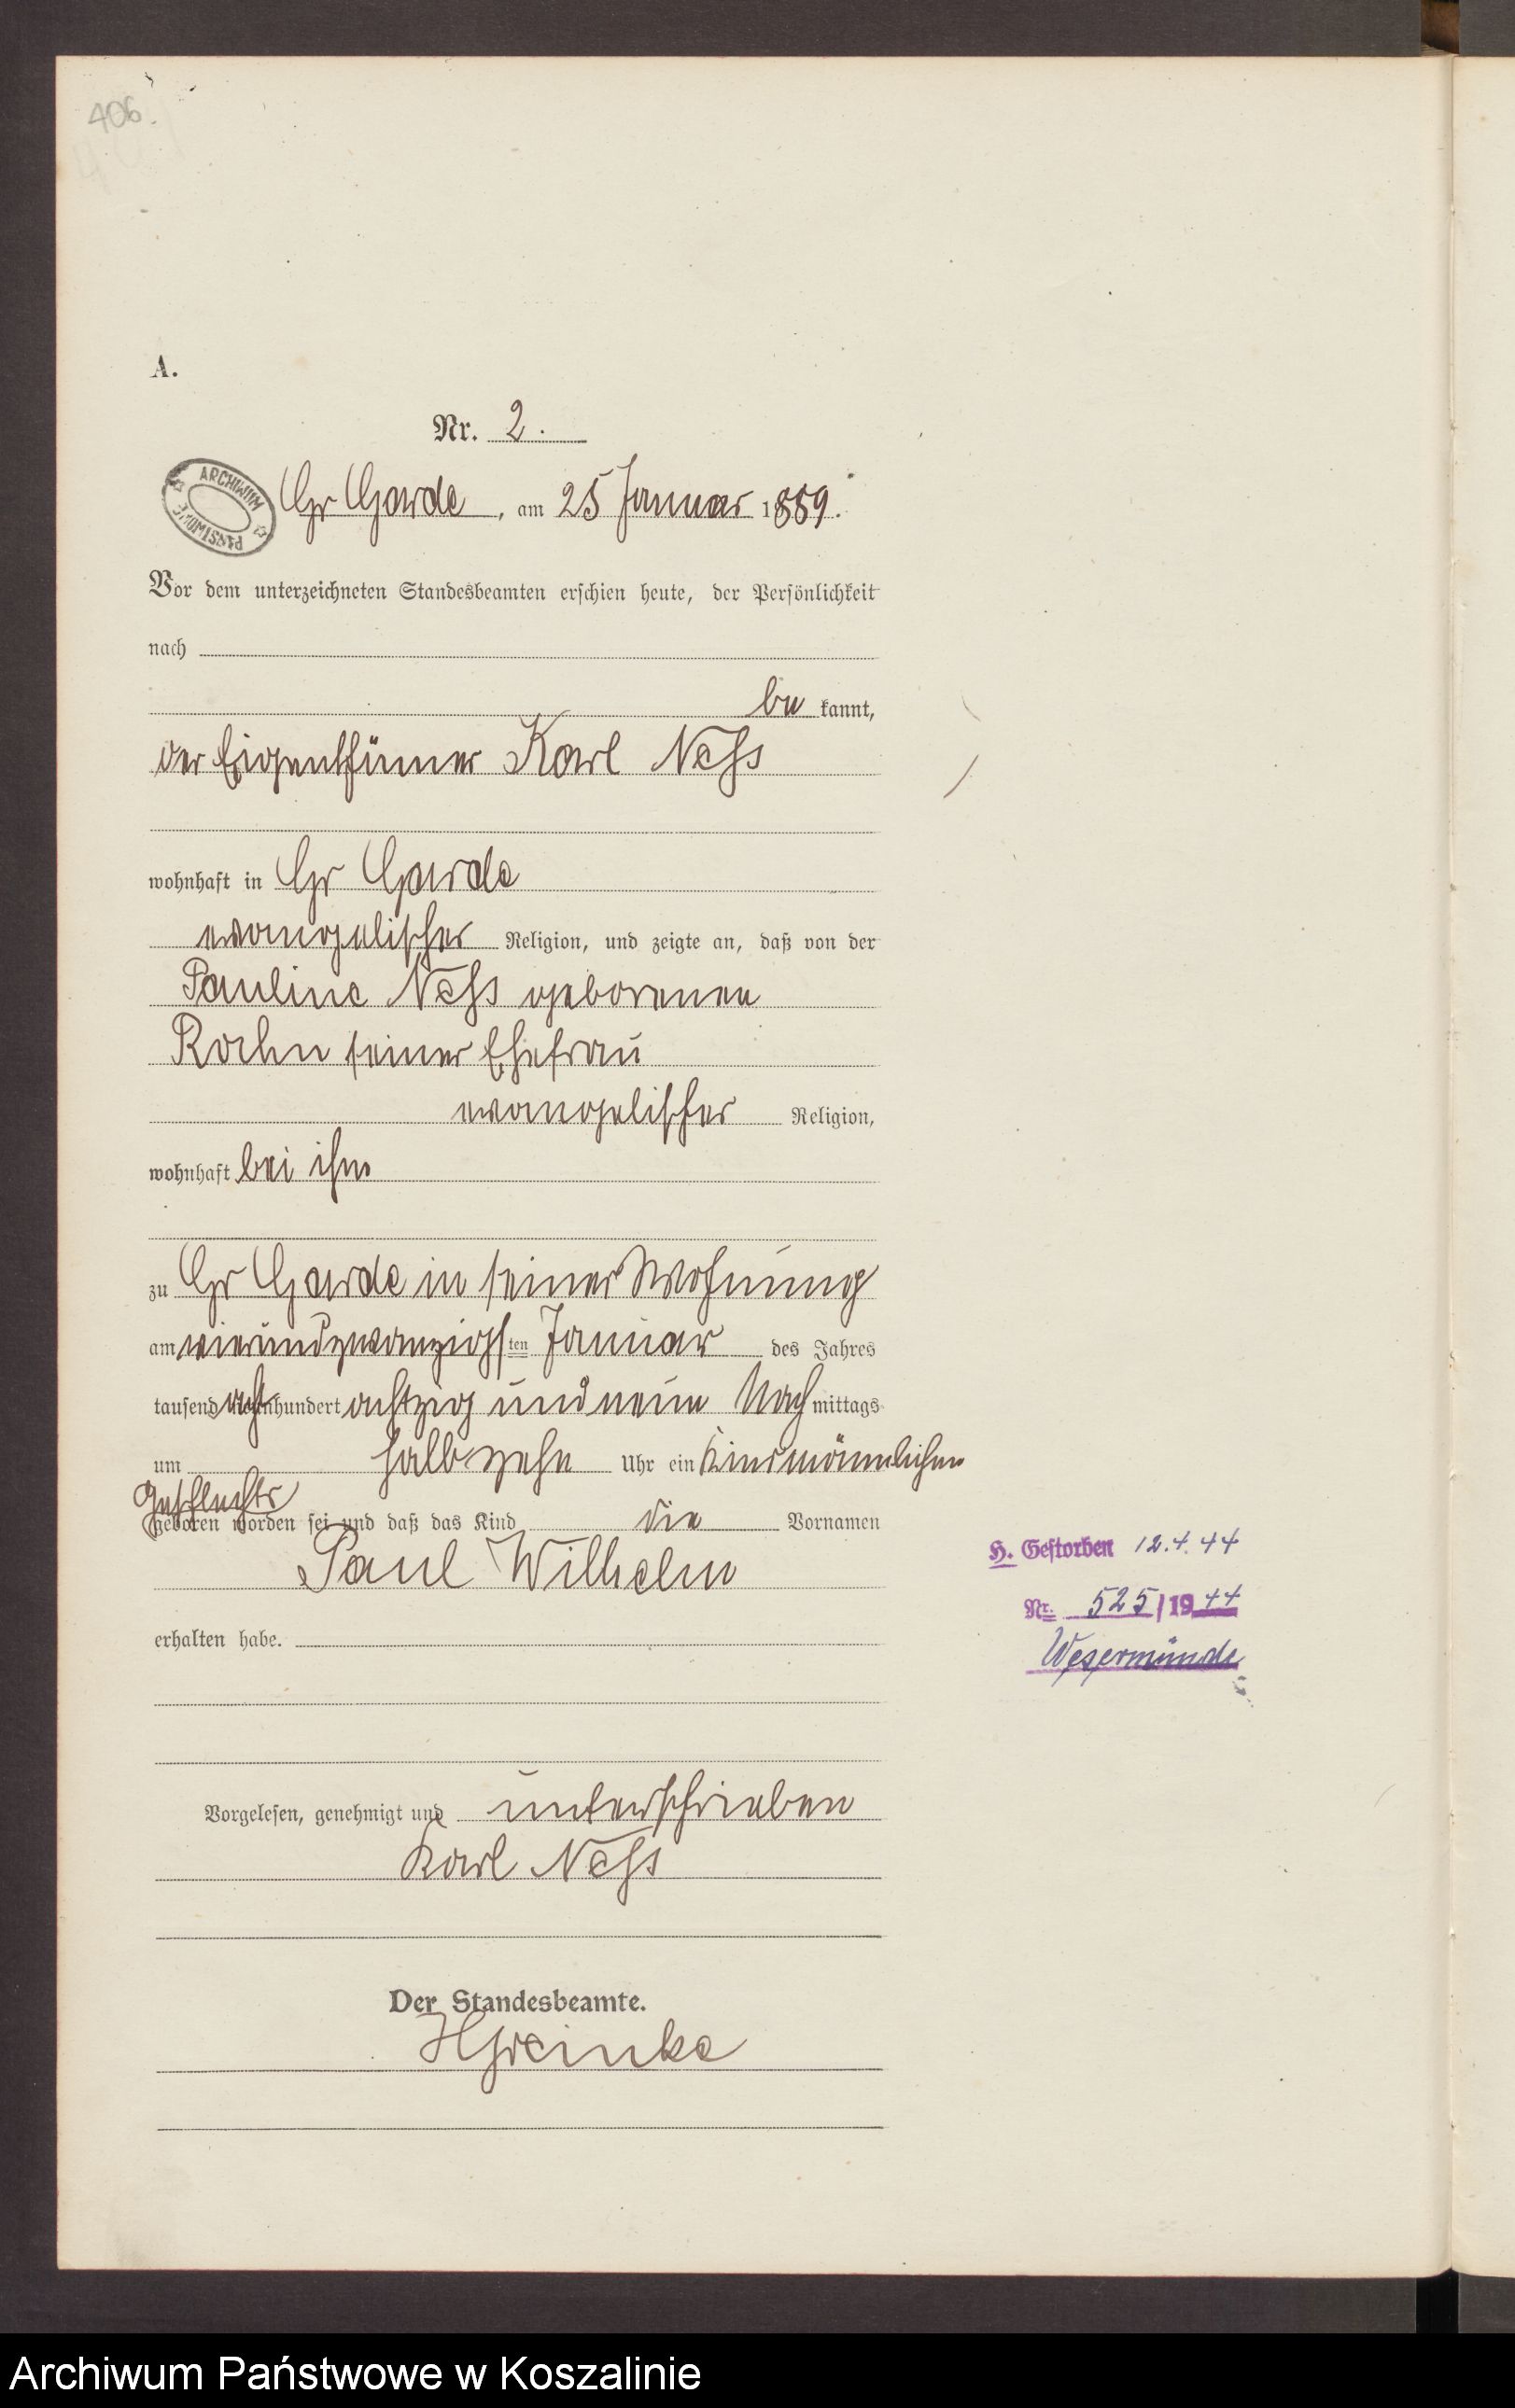 406.
A.
Nr. 2.
ARCHIWUM PAŃSTWOWE
Gr Garde, am 25 Januar 1889.
Vor dem unterzeichneten Standesbeamten erschien heute, der Persönlichkeit
nach
be kannt,
der Eigenthümer Karl Neß
wohnhaft in Gr Garde
evangelischer Religion, und zeigte an, daß von der
Pauline Neß geborenen
seiner Ehefrau
evangelischer Religion,
wohnhaft bei ihm
zu Gr Garde in seiner Wohnung
am vierundzwanzigsten Januar des Jahres
tausend acht hundert achtzig und neun Nachmittags
um halb zehn Uhr ein Kind männlichen
Geschlechts
geboren worden sei und daß das Kind die Vornamen
Paul Wilhelm
H. Gestorben 12.4.44
Nr. 525/1944
Wesermünde
erhalten habe.
Vorgelesen, genehmigt und unterschrieben
Karl Neß
Der Standesbeamte.
Archiwum Państwowe w Koszalinie